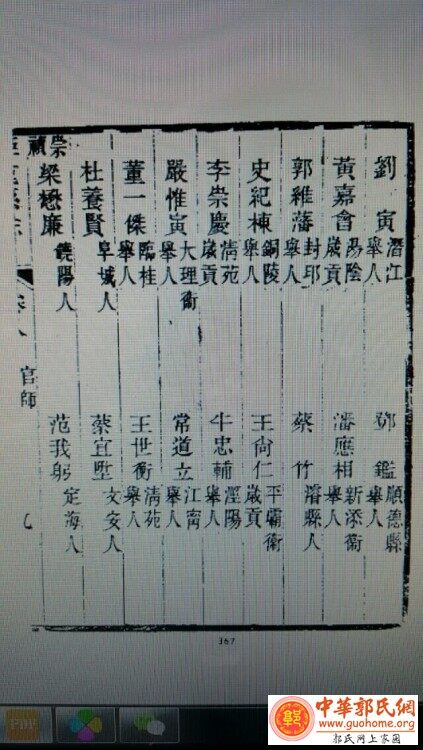 劉寅 潛江舉人 鄧鑑 順德縣舉人
黃嘉會 湯陰歲貢 潘應相 新添衛舉人
郭維藩 封邱舉人 蔡竹 濬縣人
史紀棟 銅陵舉人 王尚仁 平霸衛歲貢
李崇慶 清苑歲貢 牛忠輔 涇陽舉人
嚴惟寅 大理衛舉人 常道立 舉人
董一傑 臨桂舉人 王世衡 清苑舉人
杜養賢 阜城人 蔡宜 文安人
崇禎
梁懋廉 饒陽人 范我躬 定海人
官師 九
367
PDF
郭
中華郭氏網
www.guohome.org
郭氏网上家园